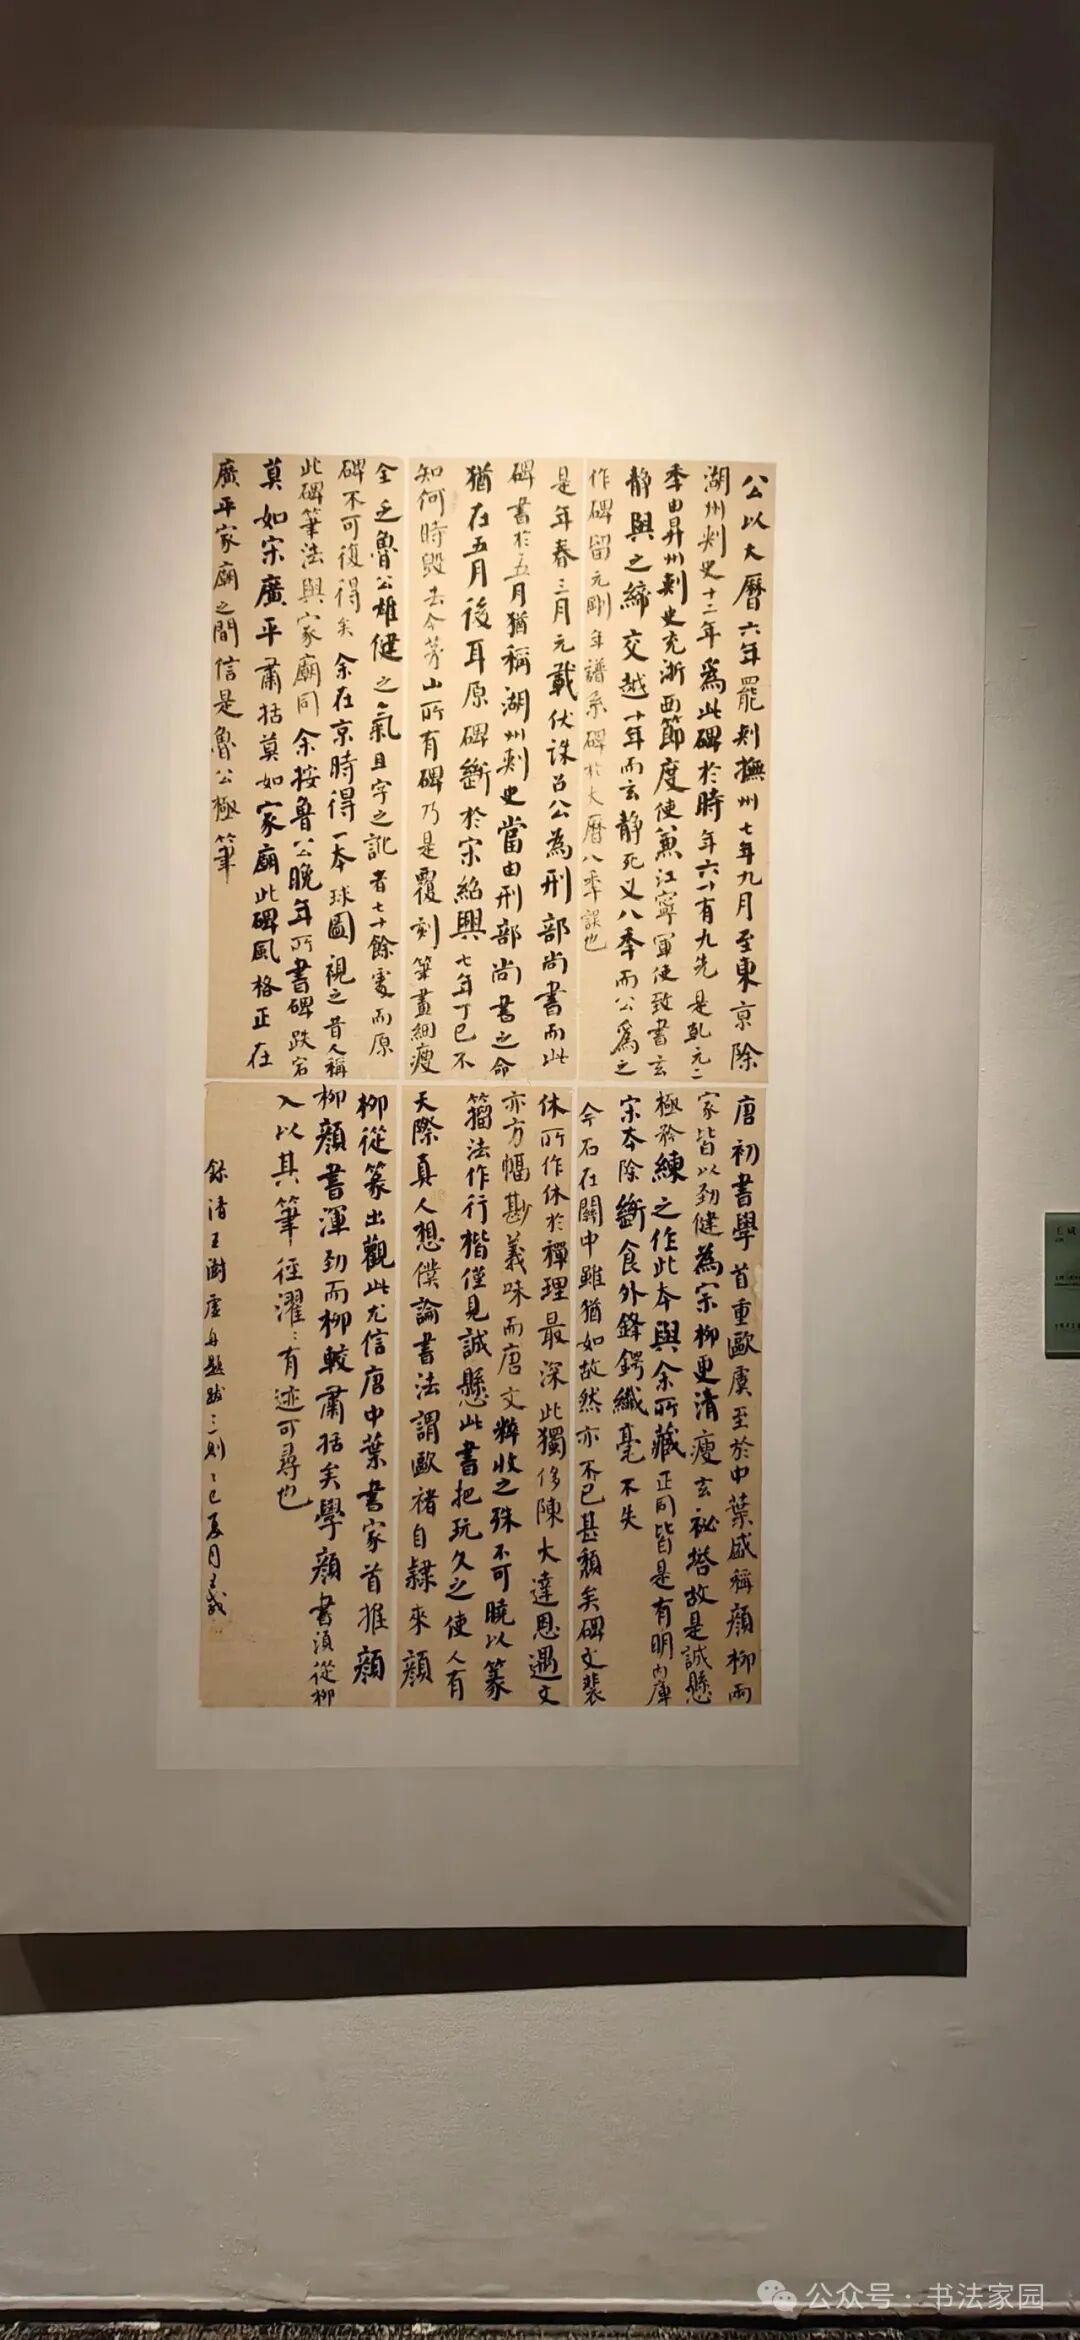 公以大曆六年罷刺撫州七年九月至東京除
湖州刺史十二年爲此碑於時年六十有九先是乾元二
季由昇州刺史充浙西節度使兼江寧軍使致書玄
靜與之締交越十年而玄靜死又八季而公爲之
作碑留元剛年譜系碑於大曆八季誤也
是年春三月元載伏誅召公為刑部尚書而此
碑書於五月猶稱湖州刺史當由刑部尚書之命
猶在五月後耳原碑斷於宋紹興七年丁巳不
知何時毀去今茅山所有碑乃是覆刻筆畫細瘦
全乏魯公雄健之氣且字之訛者七十餘處而原
碑不可復得矣余在京時得一本球圖視之昔人稱
此碑筆法與家廟同余按魯公晚年所書碑跌宕
莫如宋廣平肅括莫如家廟此碑風格正在
廣平家廟之間信是魯公極筆
唐初書學首重歐虞至於中葉盛稱顏柳兩
家皆以勁健為宗柳更清瘦玄祕塔故是誠懸
極矜練之作此本與余所藏正同皆是有明內庫
宋本除斷食外鋒鍔纖毫不失
今石在關中雖猶如故然亦不已甚頹矣碑文裴
休所作休於禪理最深此獨侈陳大達恩遇文
亦方幅尠義味而唐文粹收之殊不可曉以篆
籀法作行楷僅見誠懸此書把玩久之使人有
天際真人想僕論書法謂歐褚自隸來顏
柳從篆出觀此尤信唐中葉書家首推顏
柳顏書渾勁而柳較肅括矣學顏書須從柳
入以其筆徑濯濯有迹可尋也
錄清王澍虛舟題跋二則乙巳夏月
公众号：书法家园